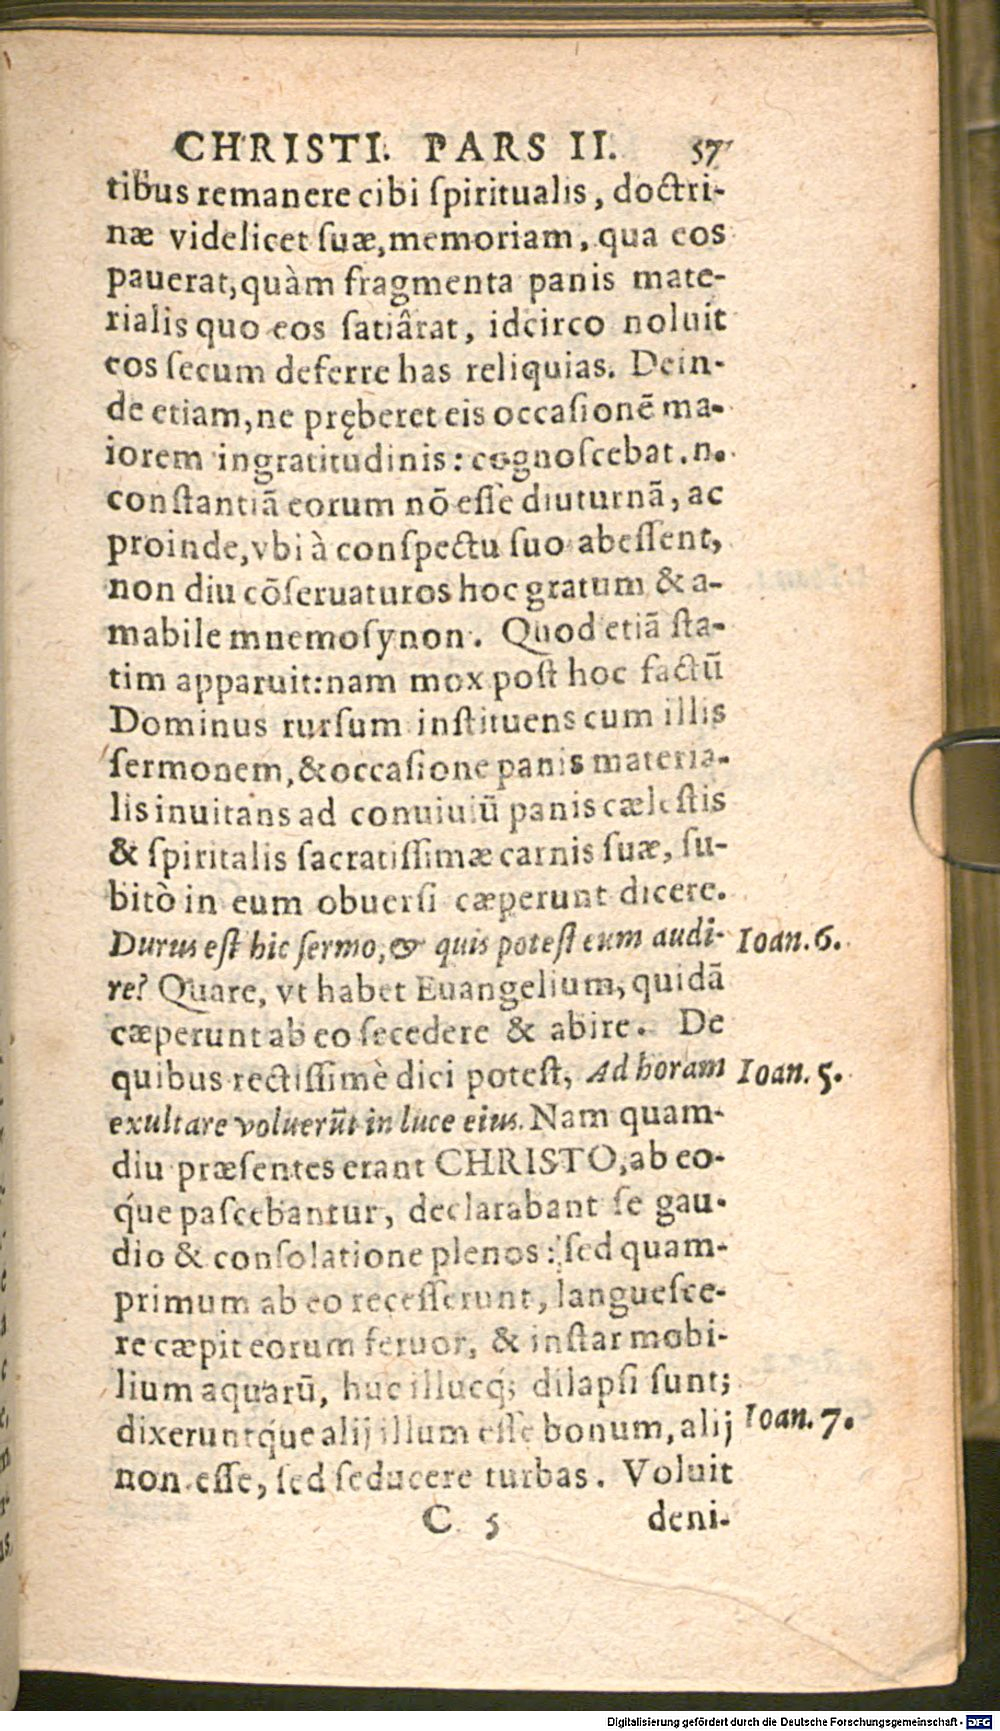 CHRISTI. PARS II. 57
tibus remanere cibi ſpiritualis, doctri-
næ videlicet ſuæ, memoriam, qua eos
pauerat, quàm fragmenta panis mate-
rialis quo eos ſatiârat, idcirco noluit
eos ſecum deferre has reliquias. Dein-
de etiam, ne pręberet eis occaſionē ma-
iorem ingratitudinis: cognoſcebat .n.
conſtantiā eorum nō eſſe diuturnā, ac
proinde, vbi à conſpectu ſuo abeſſent,
non diu cōſeruaturos hoc gratum & a-
mabile mnemoſynon. Quod etiā ſta-
tim apparuit: nam mox poſt hoc factū
Dominus rurſum inſtituens cum illis
ſermonem, & occaſione panis materia-
lis inuitans ad conuiuiū panis cæleſtis
& ſpiritalis ſacratiſſimæ carnis ſuæ, ſu-
bitò in eum obuerſi cæperunt dicere.
Durus eſt hic ſermo, & quis poteſt eum audi- Ioan. 6.
re? Quare, vt habet Euangelium, quidā
cæperunt ab eo ſecedere & abire. De
quibus rectiſſimè dici poteſt, Ad horam Ioan. 5.
exultare voluerūt in luce eius. Nam quam-
diu præſentes erant CHRISTO, ab eo-
q́ue paſcebantur, declarabant ſe gau-
dio & conſolatione plenos: ſed quam-
primum ab eo receſſerunt, langueſce-
re cæpit eorum feruor, & inſtar mobi-
lium aquarū, huc illucq́; dilapſi ſunt;
dixeruntq́ue alij illum eſſe bonum, alij Ioan. 7.
non eſſe, ſed ſeducere turbas. Voluit
C 5 deni-
Digitalisierung gefördert durch die Deutsche Forschungsgemeinschaft - DFG